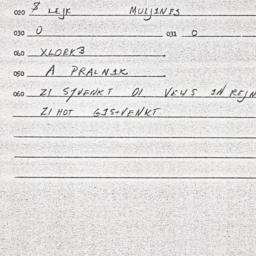 020 $ LEJK MULJINES
030 0 031 0
060 XLORK3
050 A PRALNIK
060 ZI SJVENKT OI VEWS IN REJN
ZI HOT GIS+VENKT